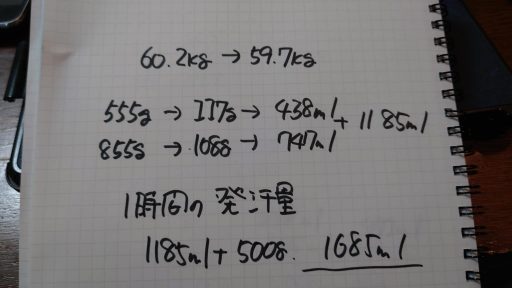 60.2kg → 59.7kg
555g → 117g → 438ml + 1185ml
855g → 108g → 747ml
1時間の 発汗量
1185ml + 500g. 1685ml